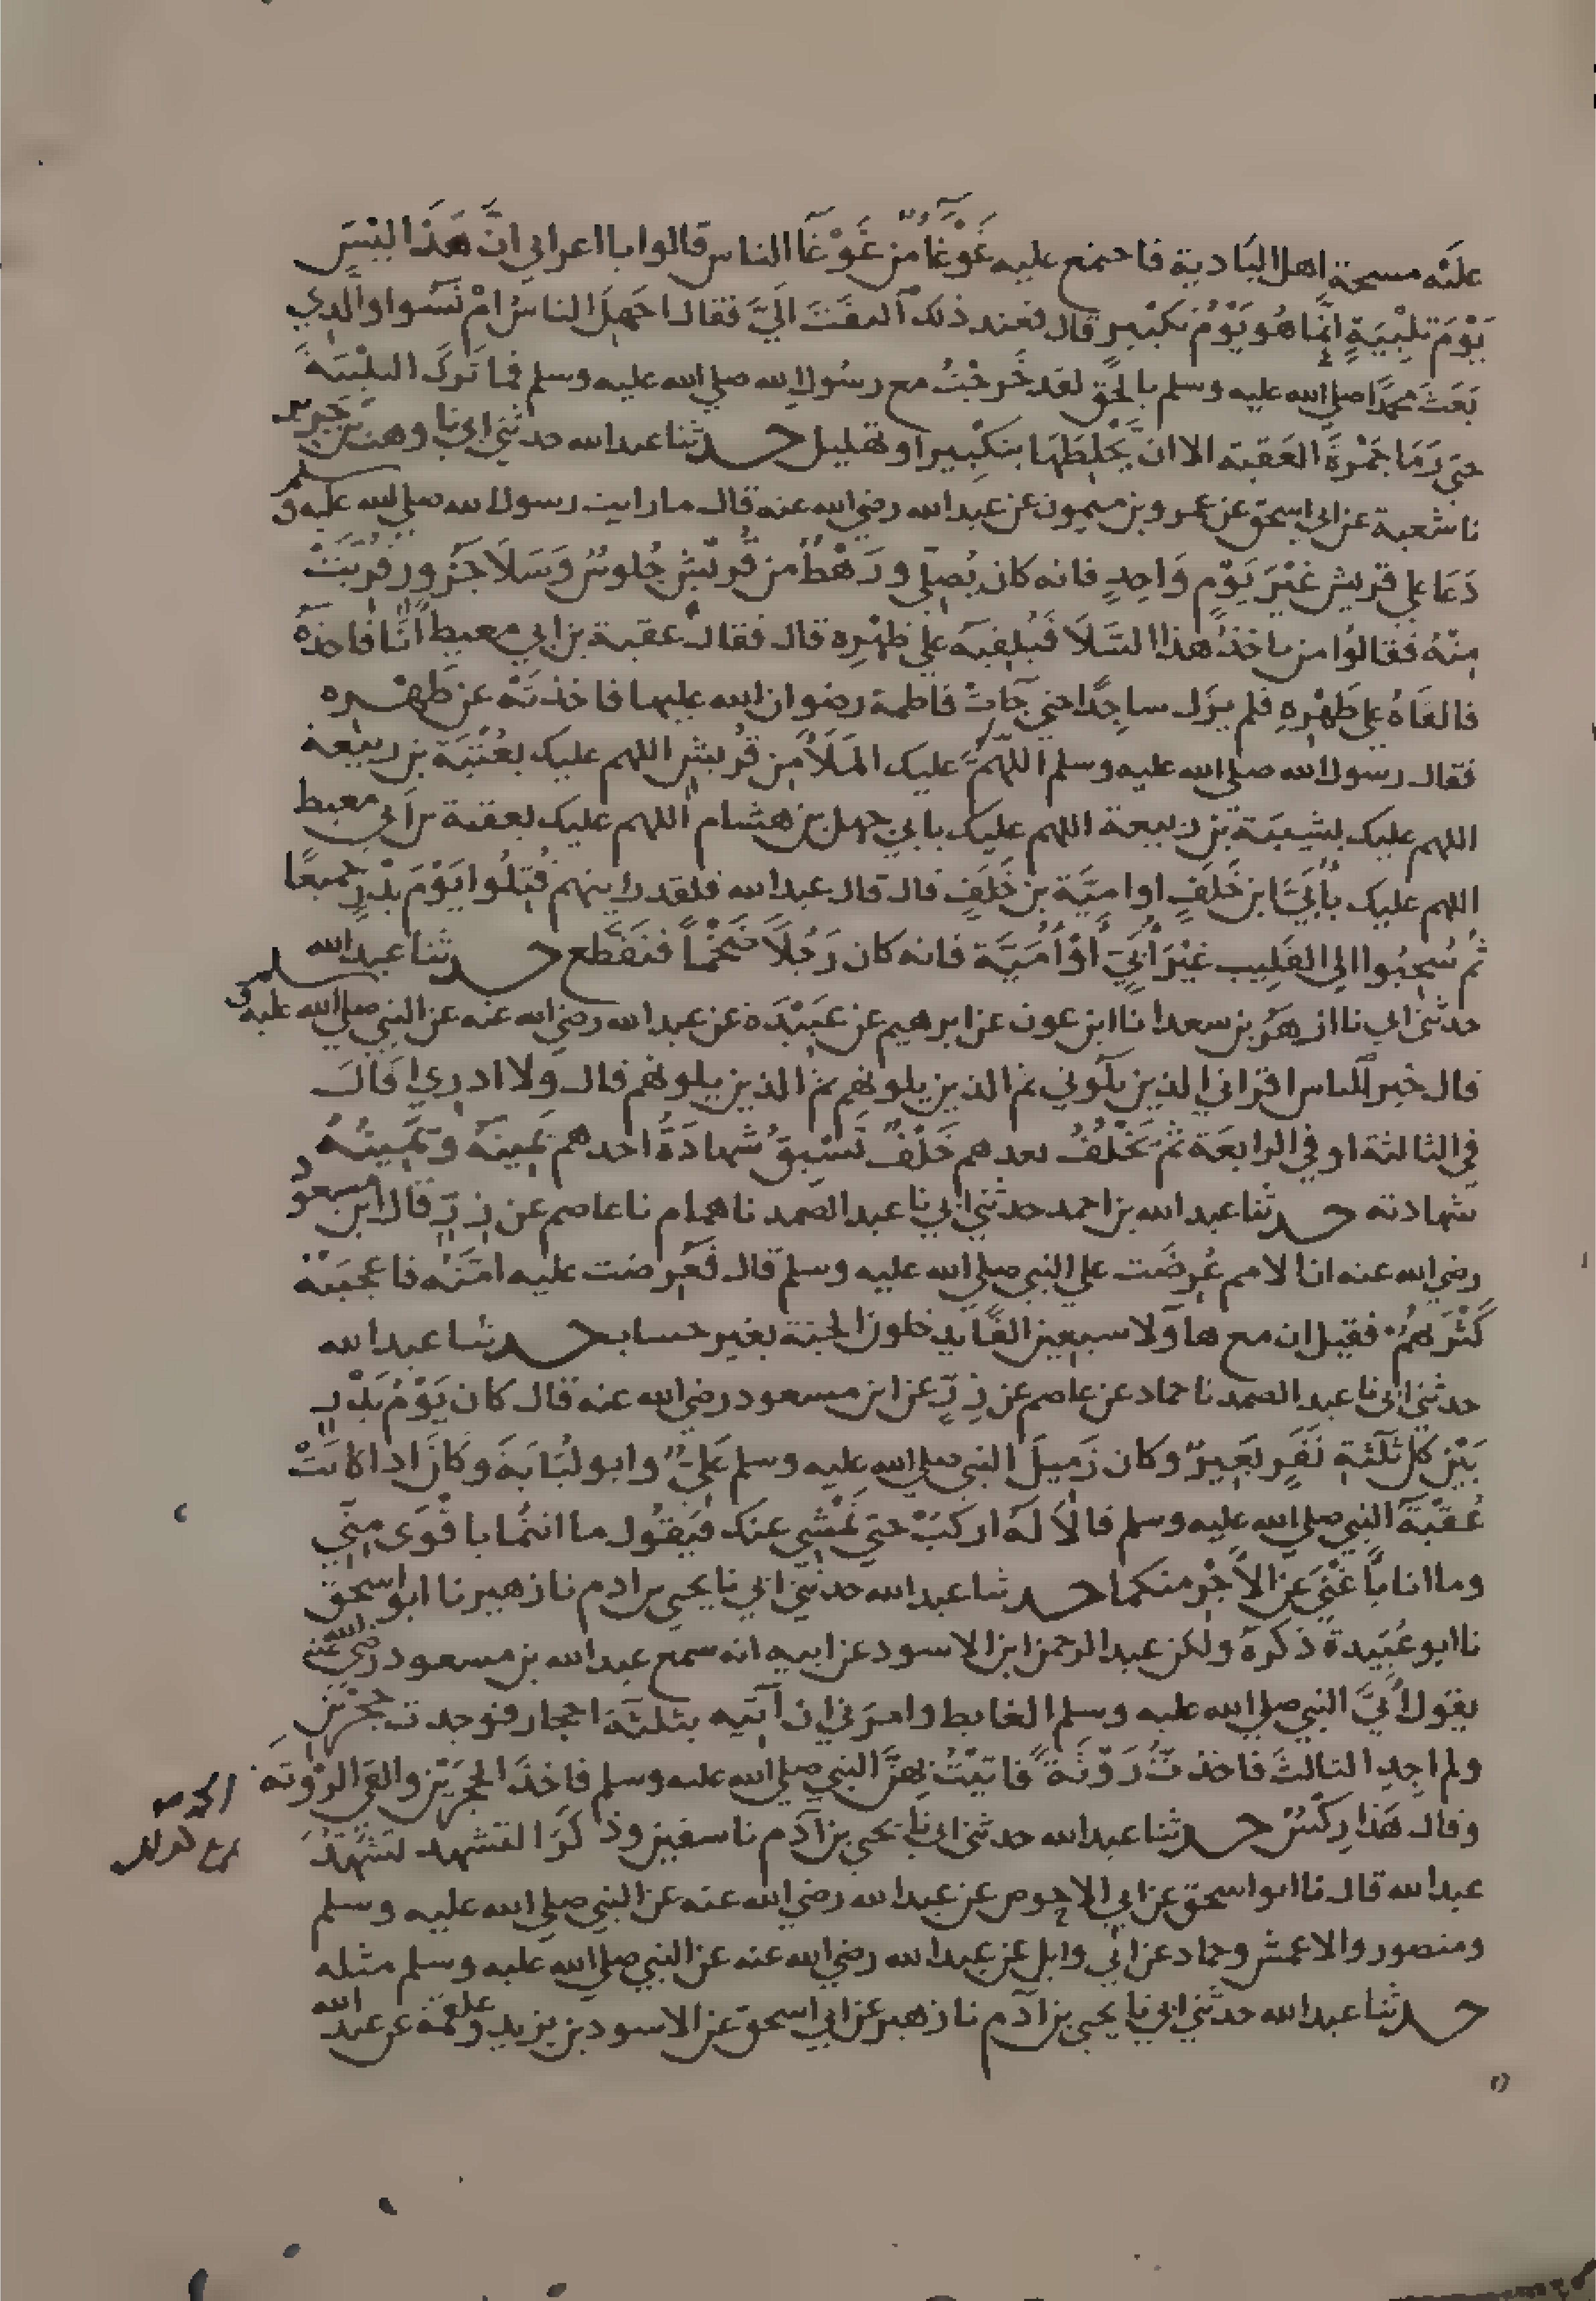 عليه مسحة اهل البادية فاجتمع عليه غَوْغَاءٌ من غَوْغَاءِ الناس قالوا يا اعرابي انَّ هَذَا ليْسَ
يَوْمَ تلبيَةٍ انما هُو يَوْمُ تكبير قال فعند ذلك التفَتَ اليَّ فقال اجَهِلَ الناسُ امْ نَسُوا والَّذي
بَعَثَ محمدًا صلى الله عليه وسلم بالحَقّ لقد خَرَجْتُ مع رسُول الله صلى الله عليه وسلم فما تَركَ التلْبيَةَ
حتى رَمَا جَمْرَةَ العَقَبة الا ان يَخْلِطَهَا بتكْبِير او تهليل حدثنا عبد الله حدثني ابي نا وهب بن جَرير
نا شعبة عن ابي اسحق عن عمرو بن ميمون عن عبد الله رضي الله عنه قال ما رايت رسول الله صلى الله عليه وسلم
دَعَا علي قريش غيْرَ يَوْمٍ وَاحِدٍ فانه كان يُصلّي ورَهْطٌ من قُريْشٍ جُلوسٌ وَسَلَا جَزُورٍ قُرِيبٌ
مِنْهُ فقالُوا من ياخذُ هذا السَّلَا فَيُلقِيَهُ علي ظهْرِه قال فقال عقبة بن ابي معيط انَا فاخذهُ
فالقَاهُ علي ظَهْرِهِ فلم يزَل ساجِدًا حتي جَاتْ فاطمة رضوان الله عليها فاخذتهْ عن ظَهْرِه
فقال رسول الله صلى الله عليه وسلم اللهُمَّ عليك المَلَأَ مِن قُريش اللهم عليك بعُتْبَة بن ربيعة
اللهم عليك بشيبَةَ بن ربيعة اللهم عليك بابي جهل بن هشام اللهم عليك بعقبة بن ابي معيط
اللهم عليك بأُبَيّ بن خَلَفٍ او امَيَّة بن خَلَفٍ قال قال عبد الله فلقد رايتهم قُتِلُوا يَوْمَ بَدْرٍ جميعًا
ثم سُحِبُوا الى القَلِيب غيْرَ أُبَيّ أوْ أُمَيَّة فانه كان رَجُلًا ضَخْمًا فتقَطّع حدثنا عبد الله
حدثني ابي نا ازهَرُ بن سعد انا ابن عون عن ابرهيم عن عَبَيْدَة عن عبد الله رضي الله عنه عن النبي صلى الله عليه وسلم
قال خير الناس اقراني الذين يلُوني ثم الذين يلونهم ثم الذين يلونهم قال ولا ادري اقَالَ
في الثالثة او في الرابعَة ثم يَخْلُفُ بعدهم خَلْفٌ تَسْبِقُ شهادَةُ احدهم يَمينَهُ ويَمينُهُ
شهادته حدثنا عبد الله بن احمد حدثني ابي نا عبد الصمد نا همام نا عاصم عن زِرّ قال ابن مسعود
رضي الله عنه ان الامم عُرِضَت علي النبي صلى الله عليه وسلم قال فَعُرِضت عليه امتهُ فاعجبَتْهُ
كَثْرَتهُمُ فقيل ان مع هاولا سبعين الفًا يدخلون الجنة بغير حساب حدثنا عبد الله
حدثني ابي نا عبد الصمد نا حماد عن عاصم عن زِرٍّ عن ابن مسعود رضي الله عنه قال كان يَوْمُ بَدْرٍ
بَيْن كل ثلثةِ نَفَرٍ بَعِيرٌ وكان زَميلَ النبي صلى الله عليه وسلم عَليٌّ وابو لُبَابَةَ وكانَ اذا كانَتْ
عُقْبَةُ النبي صلى الله عليه وسلم قالَا لَهُ اركبْ حتي نَمْشي عنك فيقُول ما انتُمَا باقْوَي مِنّي
وما انا بأَغْنَي عن الأَجْر منكما حدثنا عبد الله حدثني ابي نا يحيى بن ادم نا زهير نا ابو اسحق
نا ابو عُبَيدة ذكرهُ ولكن عبد الرحمن ابن الاسود عن ابيه انه سمع عبد الله بن مسعود رضي الله عنه
يقول أتَيَ النبي صلى الله عليه وسلم الغايط وامرَني ان آتيه بثلثة احجار فوجدت حجَرَيْن
ولم اجِد الثالثَ فاخذتُ رَوْثَةً فاتَيْتُ بِهِنَّ النبي صلى الله عليه وسلم فاخذَ الحجَرَيْن والقى الرَوْثةَ
وقال هَذا رِكْسٌ حدثنا عبد الله حدثني ابي نا يحيى بن آدم نا سفين وذكرَ التشهد تشَهّدَ
عبد الله قال نا ابو اسحق عن ابي الاحوص عن عبد الله رضي الله عنه عن النبي صلى الله عليه وسلم
ومنصور والاعمش وحماد عن ابي وايل عن عبد الله رضي الله عنه عن النبي صلى الله عليه وسلم مثله
حدثنا عبد الله حدثني ابي نا يحيى بن آدم نا زهير عن ابي اسحق عن الاسود بن يزيد وعلقمة عن عبد الله